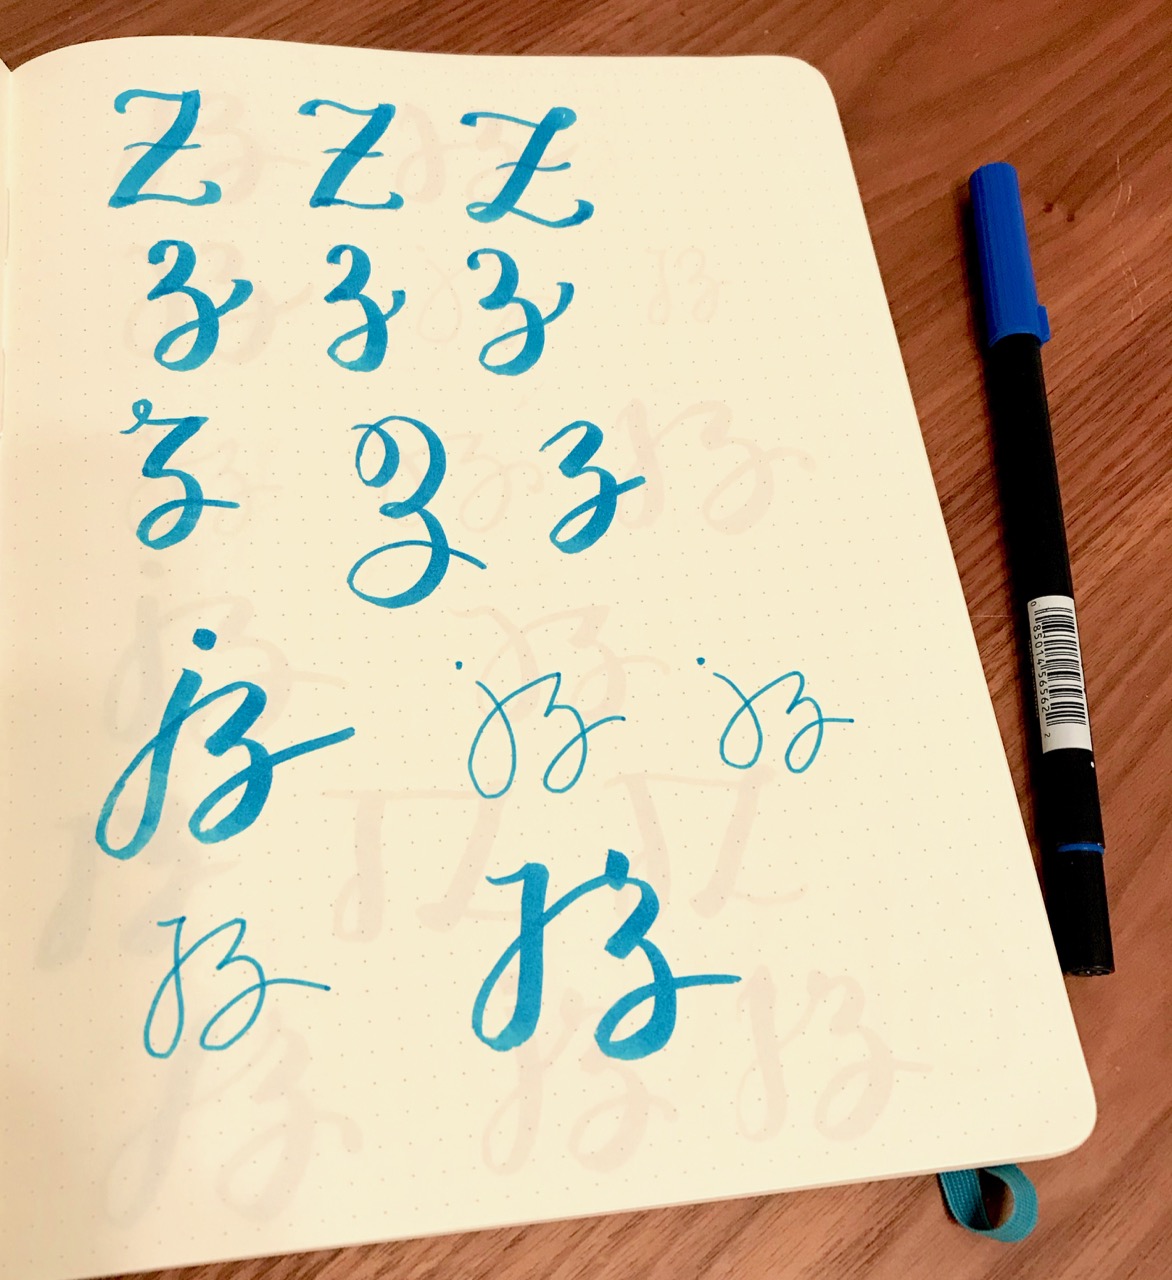 Z Z Z
z z z
z z z
jz jz jz
jz jz
0 85014 56562 2